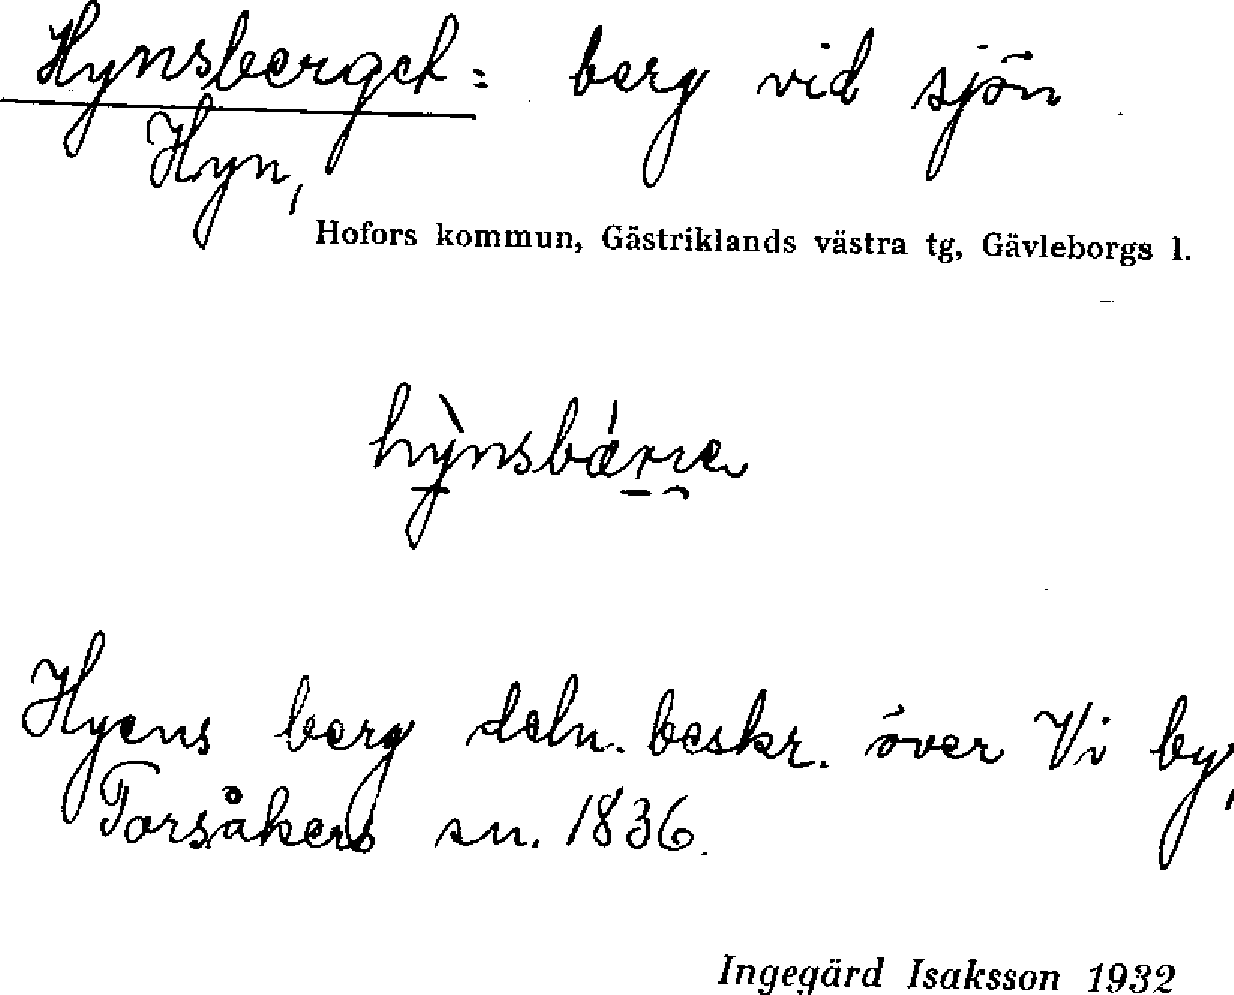 Hynsberget: berg vid sjön
Hyn,
Hofors kommun, Gästriklands västra tg, Gävleborgs l.
hỳnsbǽrre
Hyens berg deln. beskr. över Vi by,
Torsåkers sn. 1836.
Ingegärd Isaksson 1932